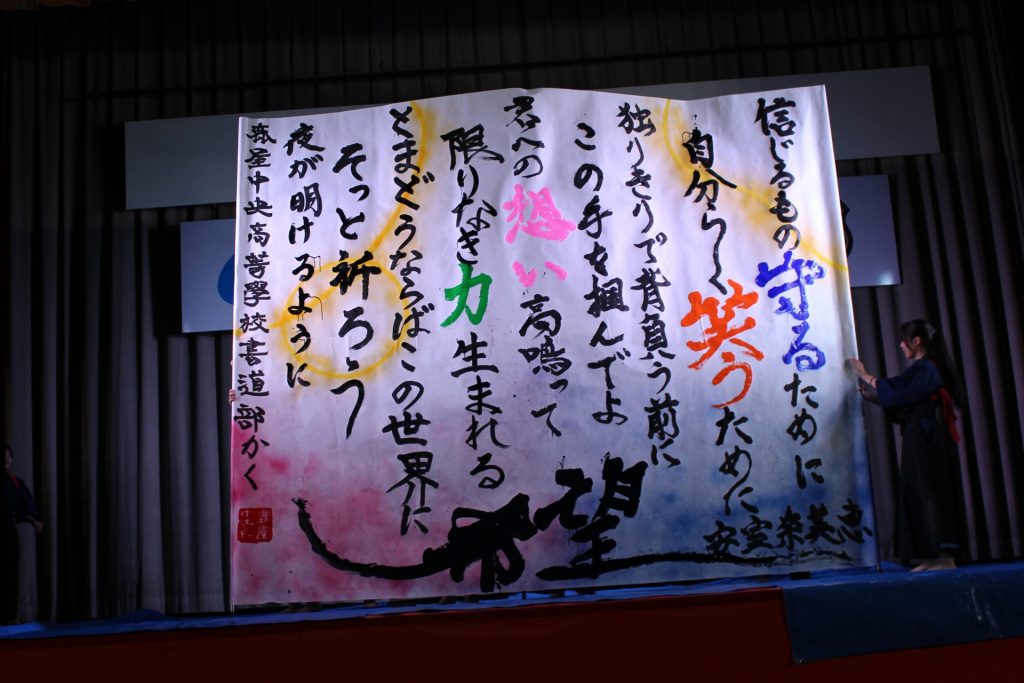 信じるもの守るために
自分らしく笑うために
独りきりで背負う前に
この手を掴んでよ
君への想い高鳴って
限りなき力生まれる
とまどうならばこの世界に
そっと祈ろう
夜が明けるように
安室奈美恵
希望
星中央高等學校書道部かく